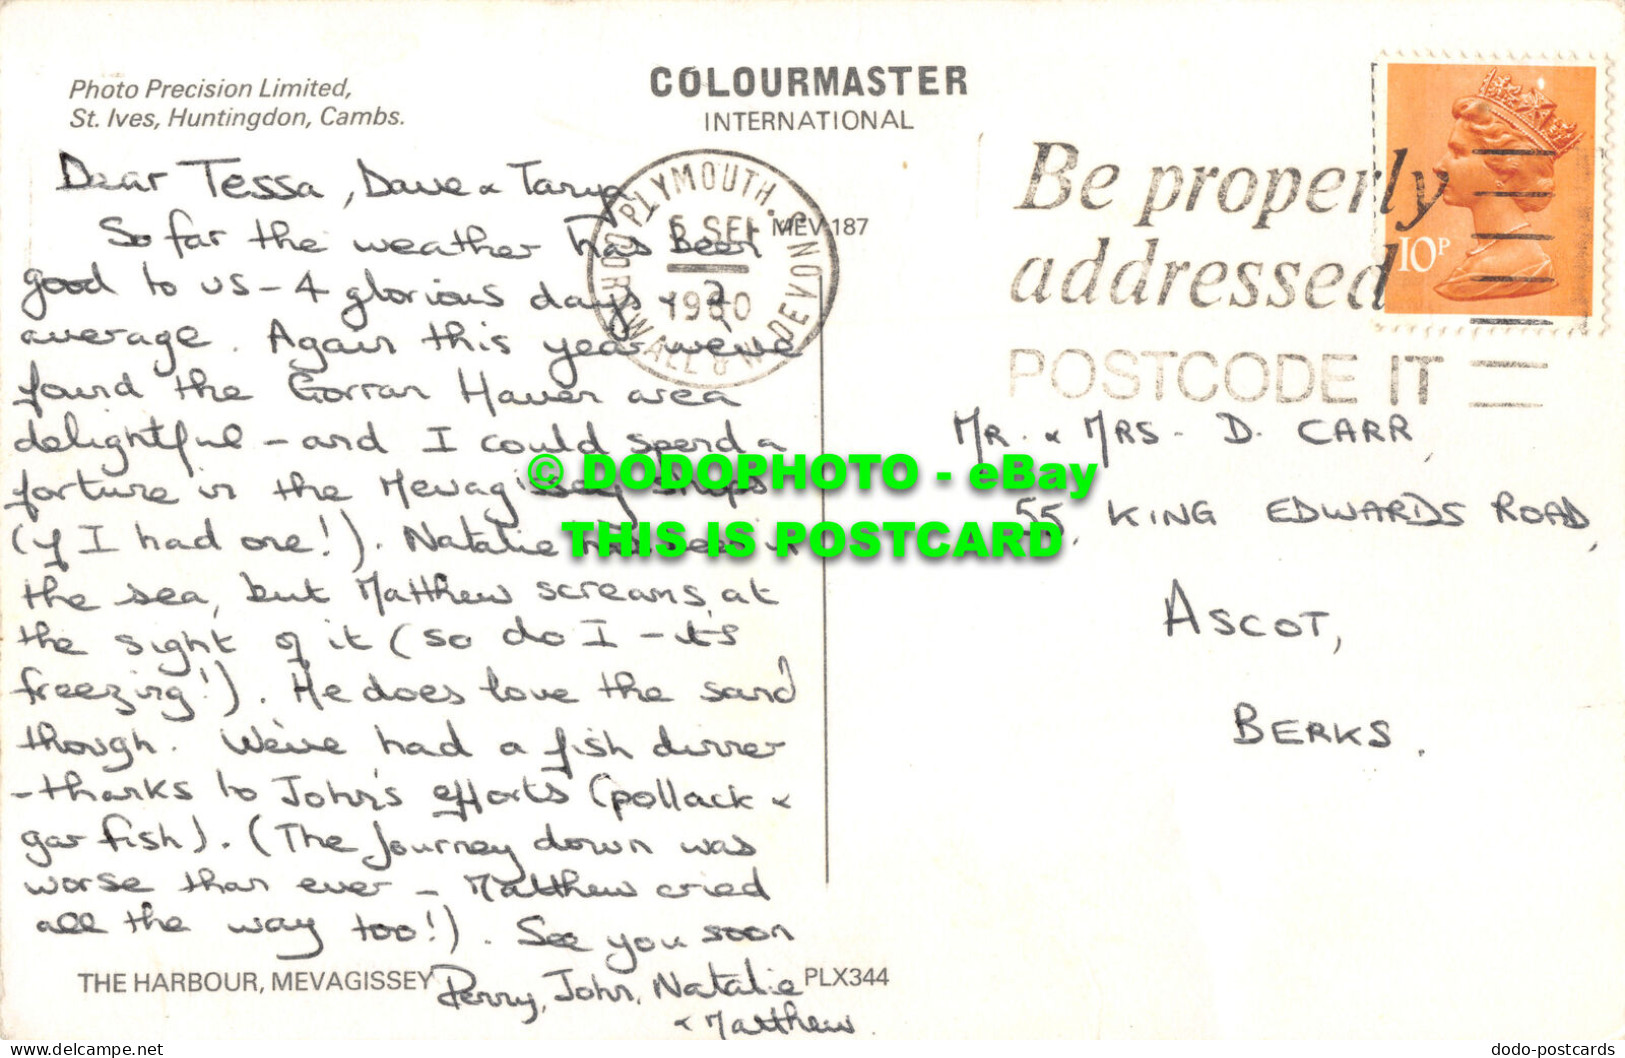 Photo Precision Limited,
St. Ives, Huntingdon, Cambs.
COLOURMASTER
INTERNATIONAL
MEV 187
Dear Tessa, Dave & Tanya
So far the weather has been
good to us - 4 glorious days & 2
average. Again this year we've
found the Gorran Haven area
delightful - and I could spend a
fortune in the Mevagissey shops
(if I had one!). Natalie has been in
the sea, but Matthew screams at
the sight of it (so do I - it's
freezing!). He does love the sand
though. We've had a fish dinner
- thanks to John's efforts (pollack &
gar fish). (The journey down was
worse than ever - Matthew cried
all the way too!). See you soon
Penny, John, Natalie
& Matthew.
THE HARBOUR, MEVAGISSEY
PLX344
PLYMOUTH
CORNWALL & N DEVON
5 SEP
1980
Be properly
addressed
POSTCODE IT
10P
MR. & MRS. D. CARR
55, KING EDWARDS ROAD,
ASCOT,
BERKS.
© DODOPHOTO - eBay
THIS IS POSTCARD
delcampe.net
dodo-postcards